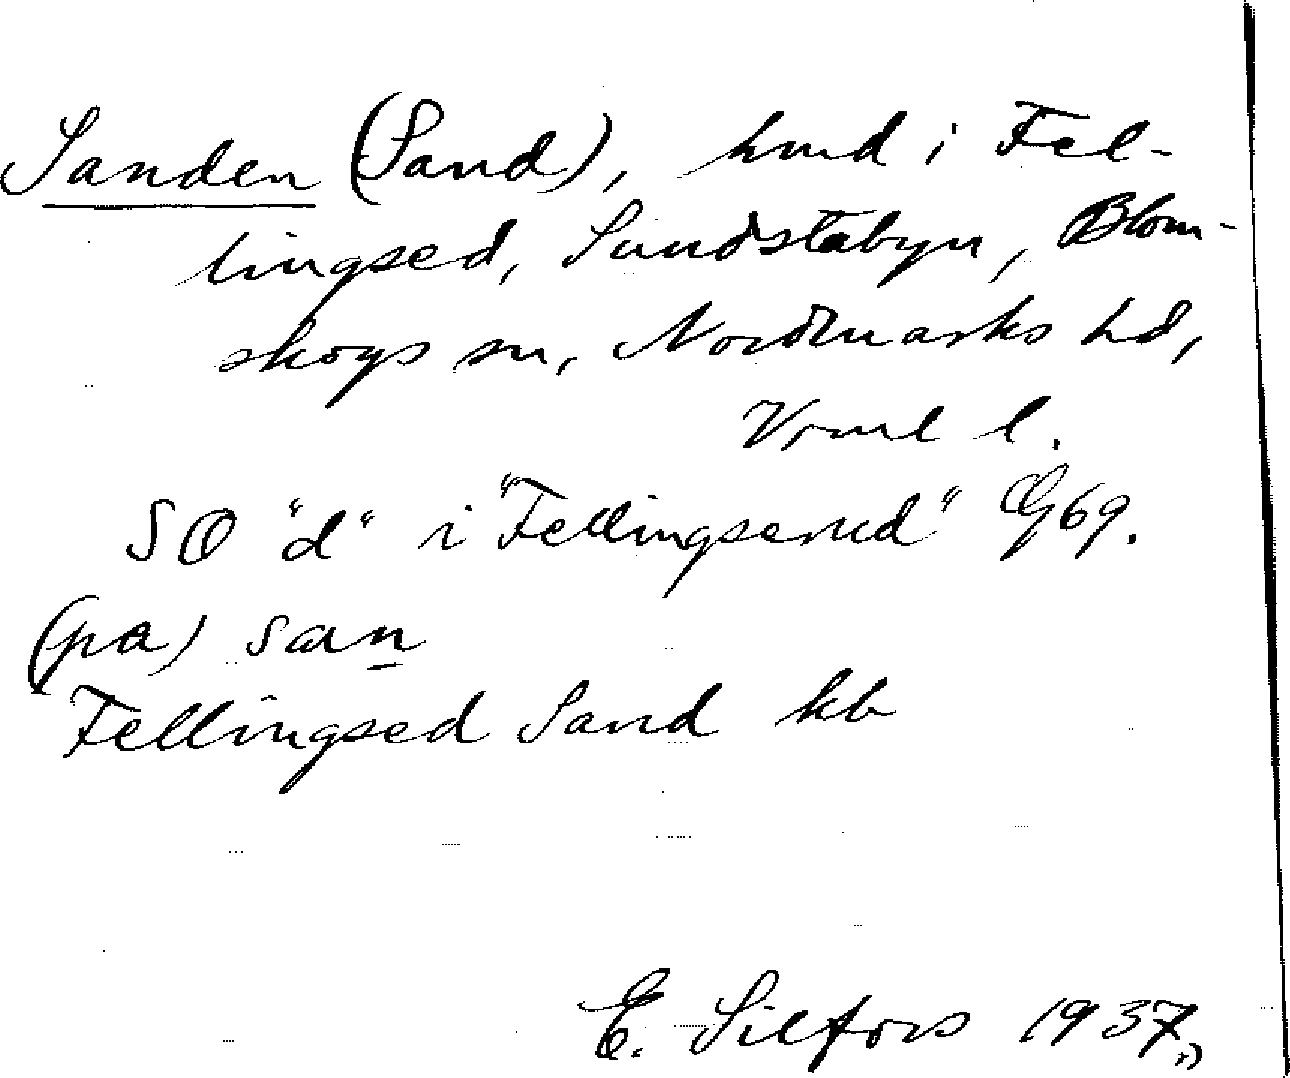 Sanden (Sand), hmd i Fel-
lingsed, Sundstabyn, Blom-
skogs sn, Nordmarks hd,
Vrml l.
SO "d" i "Fellingserud" G 69.
(pa) san
Fellingsed Sand kb
E. Silfors 1937